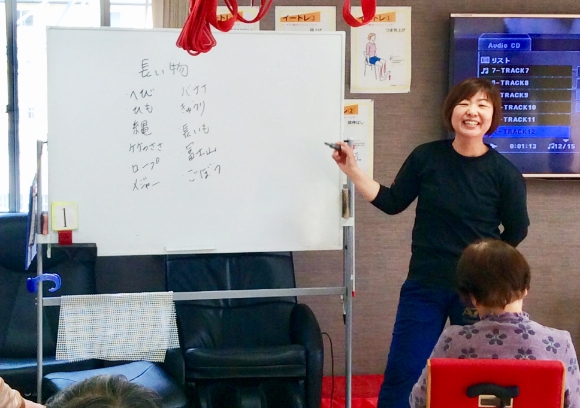 長い物
へび
ひも
縄
ロープ
メジャー
バナナ
きゅうり
長いも
富士山
ごぼう
1
イートレ
つま先上げ
Audio CD
リスト
7-TRACK7
-TRACK8
-TRACK9
TRACK10
TRACK11
TRACK12
0:01:13
12/15